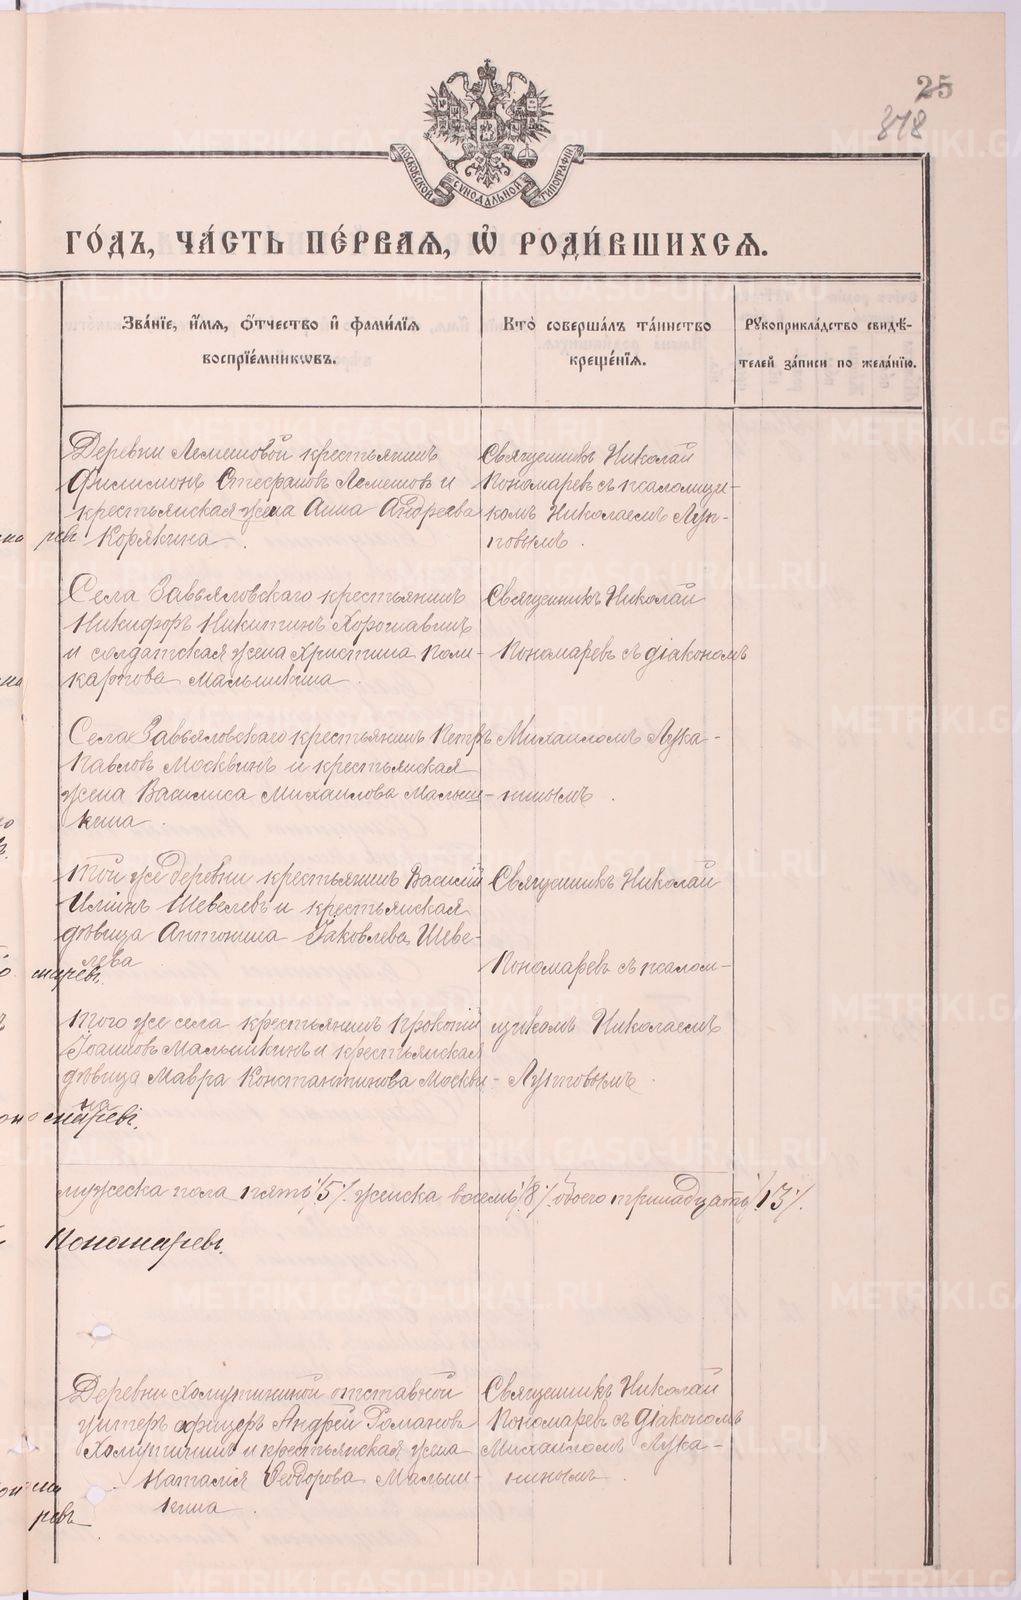 25
318
МОСКОВСКОЙ СѴНОДАЛЬНОЙ ТИПОГРАФІИ
ГО́ДЪ, ЧА́СТЬ ПЕ́РВАЯ, Ѡ РОДИ́ВШИХСЯ.
Зва́нїе, и҆́мя, ѻ҆́тчество и҆ фамилїя
воспрїе́мникѡвъ.
Кто̀ соверша́лъ та́инство
креще́нїя.
Рукоприкла́дство свидѣ́-
телей за́писи по жела́нїю.
Деревни Лемешовой крестьянинъ
Филимонъ Стефановъ Лемешов и
крестьянская жена Анна Андреева
Корякина.
Священникъ Николай
Пономаревъ съ псаломщи-
комъ Николаемъ Луп-
повымъ.
Села Завьяловскаго крестьянинъ
Никифоръ Никитинъ Хорошавинъ
и солдатская жена Христина Поли-
карпова Малышкина.
Священникъ Николай
Пономаревъ съ діакономъ
Села Завьяловскаго крестьянинъ Петръ
Павловъ Москвинъ и крестьянская
жена Василиса Михаилова Малыш-
кина.
Михаиломъ Лука-
нинымъ.
Той же деревни крестьянинъ Василій
Илiинъ Шевелевъ и крестьянская
дѣвица Антонина Іаковлева Шеве-
лева
Священникъ Николай
Пономаревъ съ псалом-
Того же села крестьянинъ Прокопій
Іоанновъ Малышкинъ и крестьянская
дѣвица Мавра Константинова Москви-
на
щикомъ Николаемъ
Лупповымъ.
мужеска пола пять /5/. женска восемь /8/. обоего тринадцать /13/.
Пономаревъ.
Деревни Хомутининой отставной
унтеръ офицеръ Андрей Романовъ
Хомутининъ и крестьянская жена
Наталія Ѳеодорова Малыш-
кина.
Священникъ Николай
Пономаревъ съ діакономъ
Михаиломъ Лука-
нинымъ.